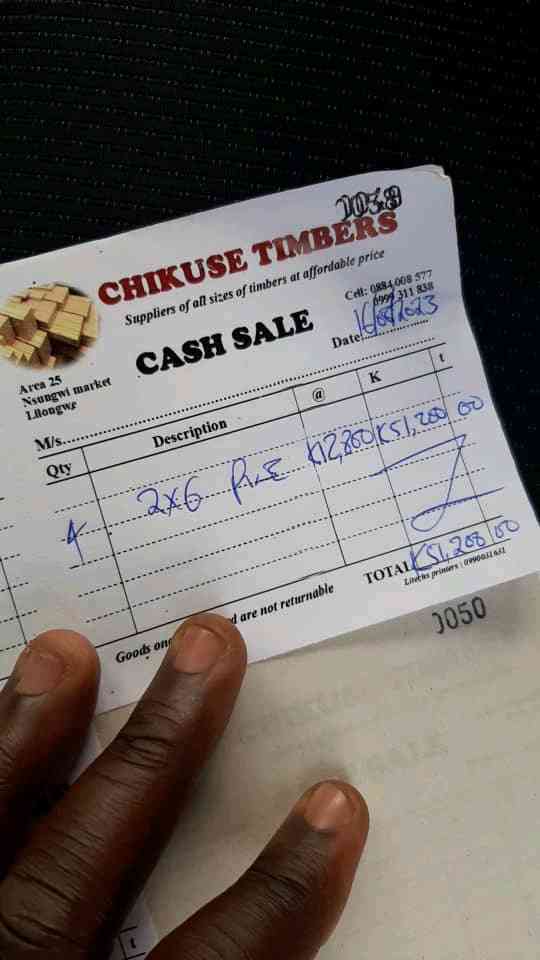 CHIKUSE TIMBERS
Suppliers of all sizes of timbers at affordable price
Cell: 0884 008 577
0999 311 838
CASH SALE
Date
Area 25
Nsungwi market
Lilongwe
M/s
Qty Description @ K t
4 2x6 PINE K12,800 K51,200 00
TOTAL K51,200 00
Goods are not returnable
0990031631
0050
t